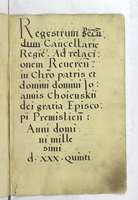 Regestrum Secun
dum Cancellarie
Regie. Ad relaci:
onem Reueren:
in Chro patris et
domini domini Jo:
annis Choienskii
dei gratia Episco:
pi Premislien:
Anni domi
ni mille
simi
d. XXX. Quinti